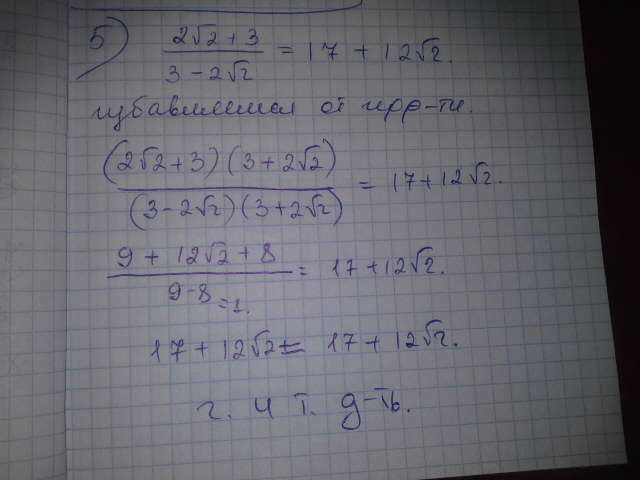 5) (2√2 + 3)/(3 - 2√2) = 17 + 12√2.
избавляемся от ирр-ти.
((2√2 + 3)(3 + 2√2))/((3 - 2√2)(3 + 2√2)) = 17 + 12√2.
(9 + 12√2 + 8)/(9-8 =1.) = 17 + 12√2.
17 + 12√2 = 17 + 12√2.
ч. и т. д-ть.